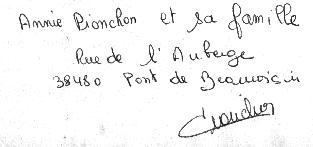 Annie Pionchon et sa famille
Rue de l'Auberge
38480 Pont de Beauvoisin